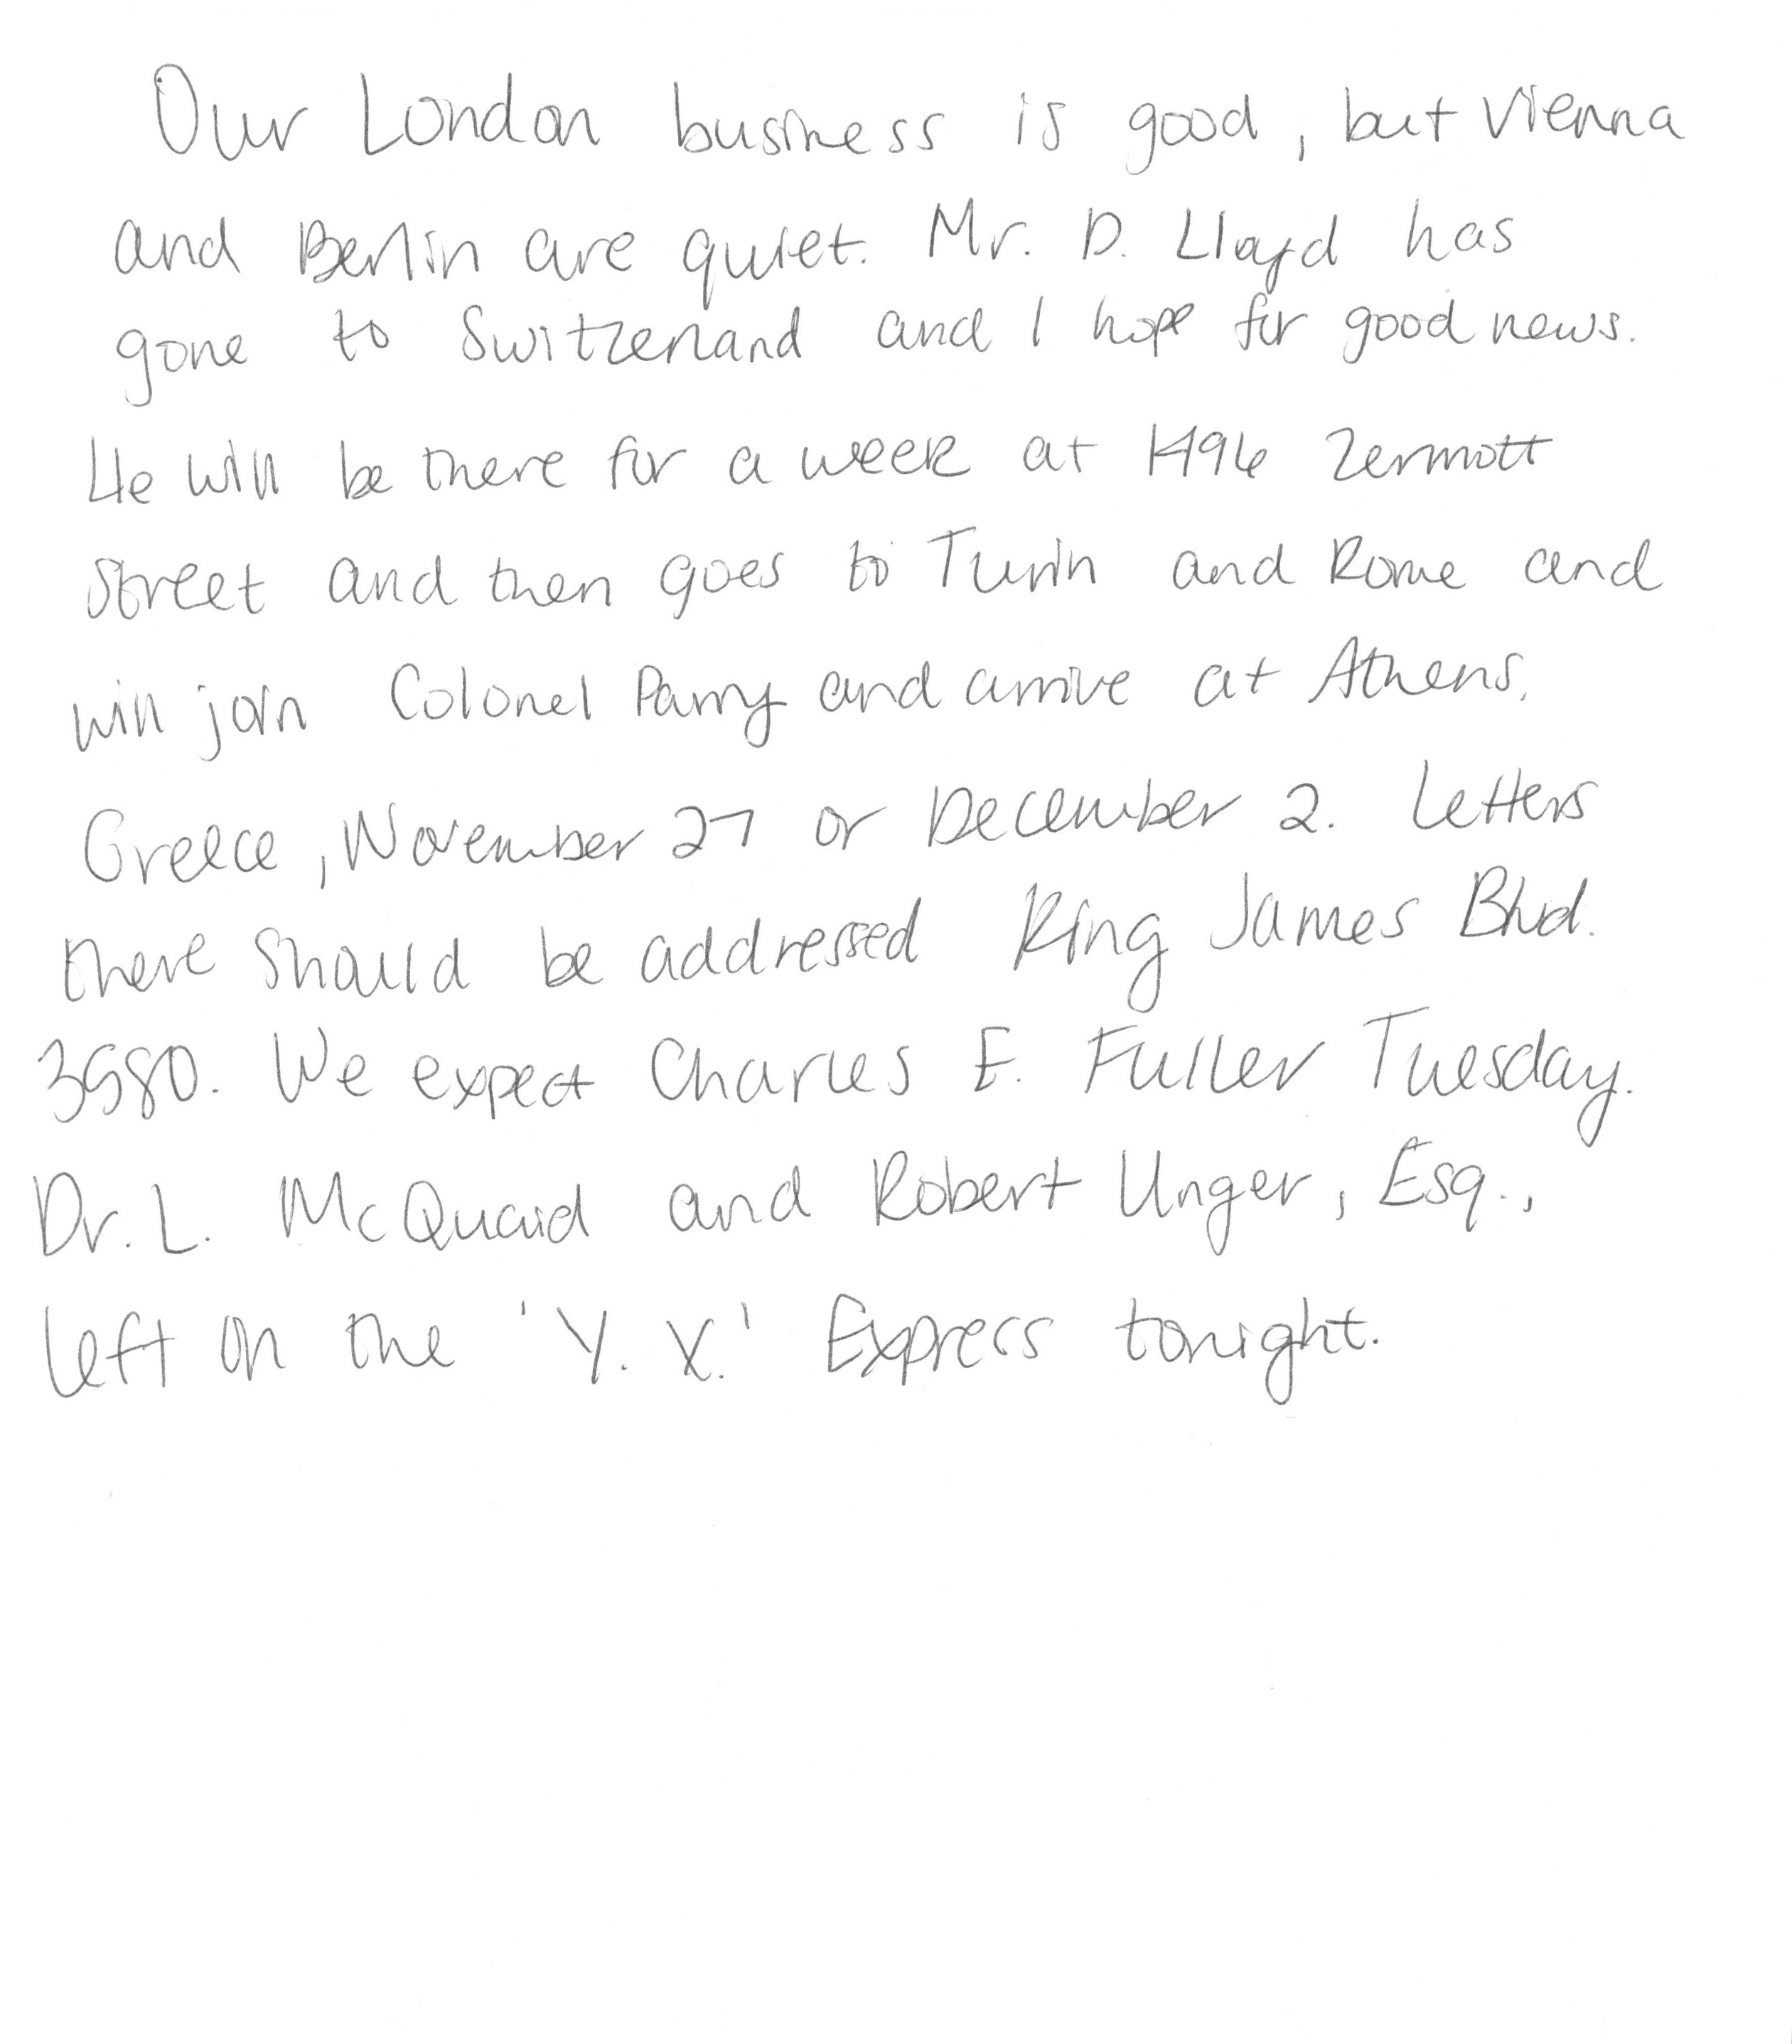 Our London business is good, but Vienna
and Berlin are quiet. Mr. D. Lloyd has
gone to Switzerland and I hope for good news.
He will be there for a week at 1496 Zermott
street and then goes to Turin and Rome and
will join Colonel Parry and arrive at Athens,
Greece, November 27 or December 2. Letters
there should be addressed King James Blvd.
3580. We expect Charles E. Fuller Tuesday.
Dr. L. McQuaid and Robert Unger, Esq.,
left on the 'Y. X.' Express tonight.